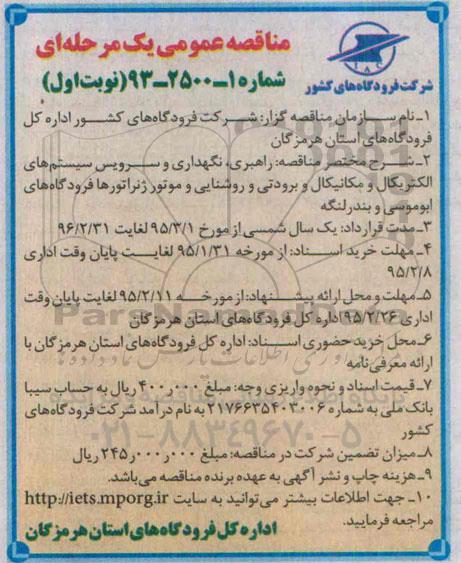 مناقصه عمومی یک مرحله‌ای
شماره ۱ـ۲۵۰۰ـ۹۳ (نوبت اول)
شرکت فرودگاه‌های کشور
۱ـ نام سازمان مناقصه گزار: شرکت فرودگاه‌های کشور اداره کل
فرودگاه‌های استان هرمزگان
۲ـ شرح مختصر مناقصه: راهبری، نگهداری و سرویس سیستم‌های
الکتریکال و مکانیکال و برودتی و روشنایی و موتور ژنراتورها فرودگاه‌های
ابوموسی و بندرلنگه
۳ـ مدت قرارداد: یک سال شمسی از مورخ ۹۵/۳/۱ لغایت ۹۶/۲/۳۱
۴ـ مهلت خرید اسناد: از مورخه ۹۵/۱/۳۱ لغایت پایان وقت اداری
۹۵/۲/۸
۵ـ مهلت و محل ارائه پیشنهاد: از مورخه ۹۵/۲/۱۱ لغایت پایان وقت
اداری ۹۵/۲/۲۶ اداره کل فرودگاه‌های استان هرمزگان
۶ـ محل خرید حضوری اسناد: اداره کل فرودگاه‌های استان هرمزگان با
ارائه معرفی‌نامه
۷ـ قیمت اسناد و نحوه واریزی وجه: مبلغ ۴۰۰ر۰۰۰ ریال به حساب سیبا
بانک ملی به شماره ۲۱۷۶۶۳۵۴۰۳۰۰۶ به نام درآمد شرکت فرودگاه‌های
کشور
۸ـ میزان تضمین شرکت در مناقصه: مبلغ ۲۴۵ر۰۰۰ر۰۰۰ ریال
۹ـ هزینه چاپ و نشر آگهی به عهده برنده مناقصه می‌باشد.
۱۰ـ جهت اطلاعات بیشتر می‌توانید به سایت http://iets.mporg.ir
مراجعه فرمایید.
اداره کل فرودگاه‌های استان هرمزگان
۰۲۱-۸۸۳۴۹۶۷۰-۵